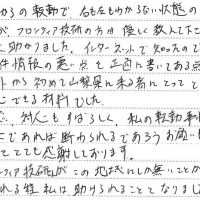 からの転勤で、右も左もわからない状態の
が、フロンティア技研の方は優しく教えて下さ
に助かりました。インターネットで知ったので
件情報の悪い点を正直に書いてある点
トから初めて山梨県に来る者にとって
できる材料でした。
で、対人もすばらしく、私の転勤事
であれば断わられるであろうお願い
とても感謝しております。
ティア技研がこの地域にしか無いことが
れる程、私は助けられることとなりまし